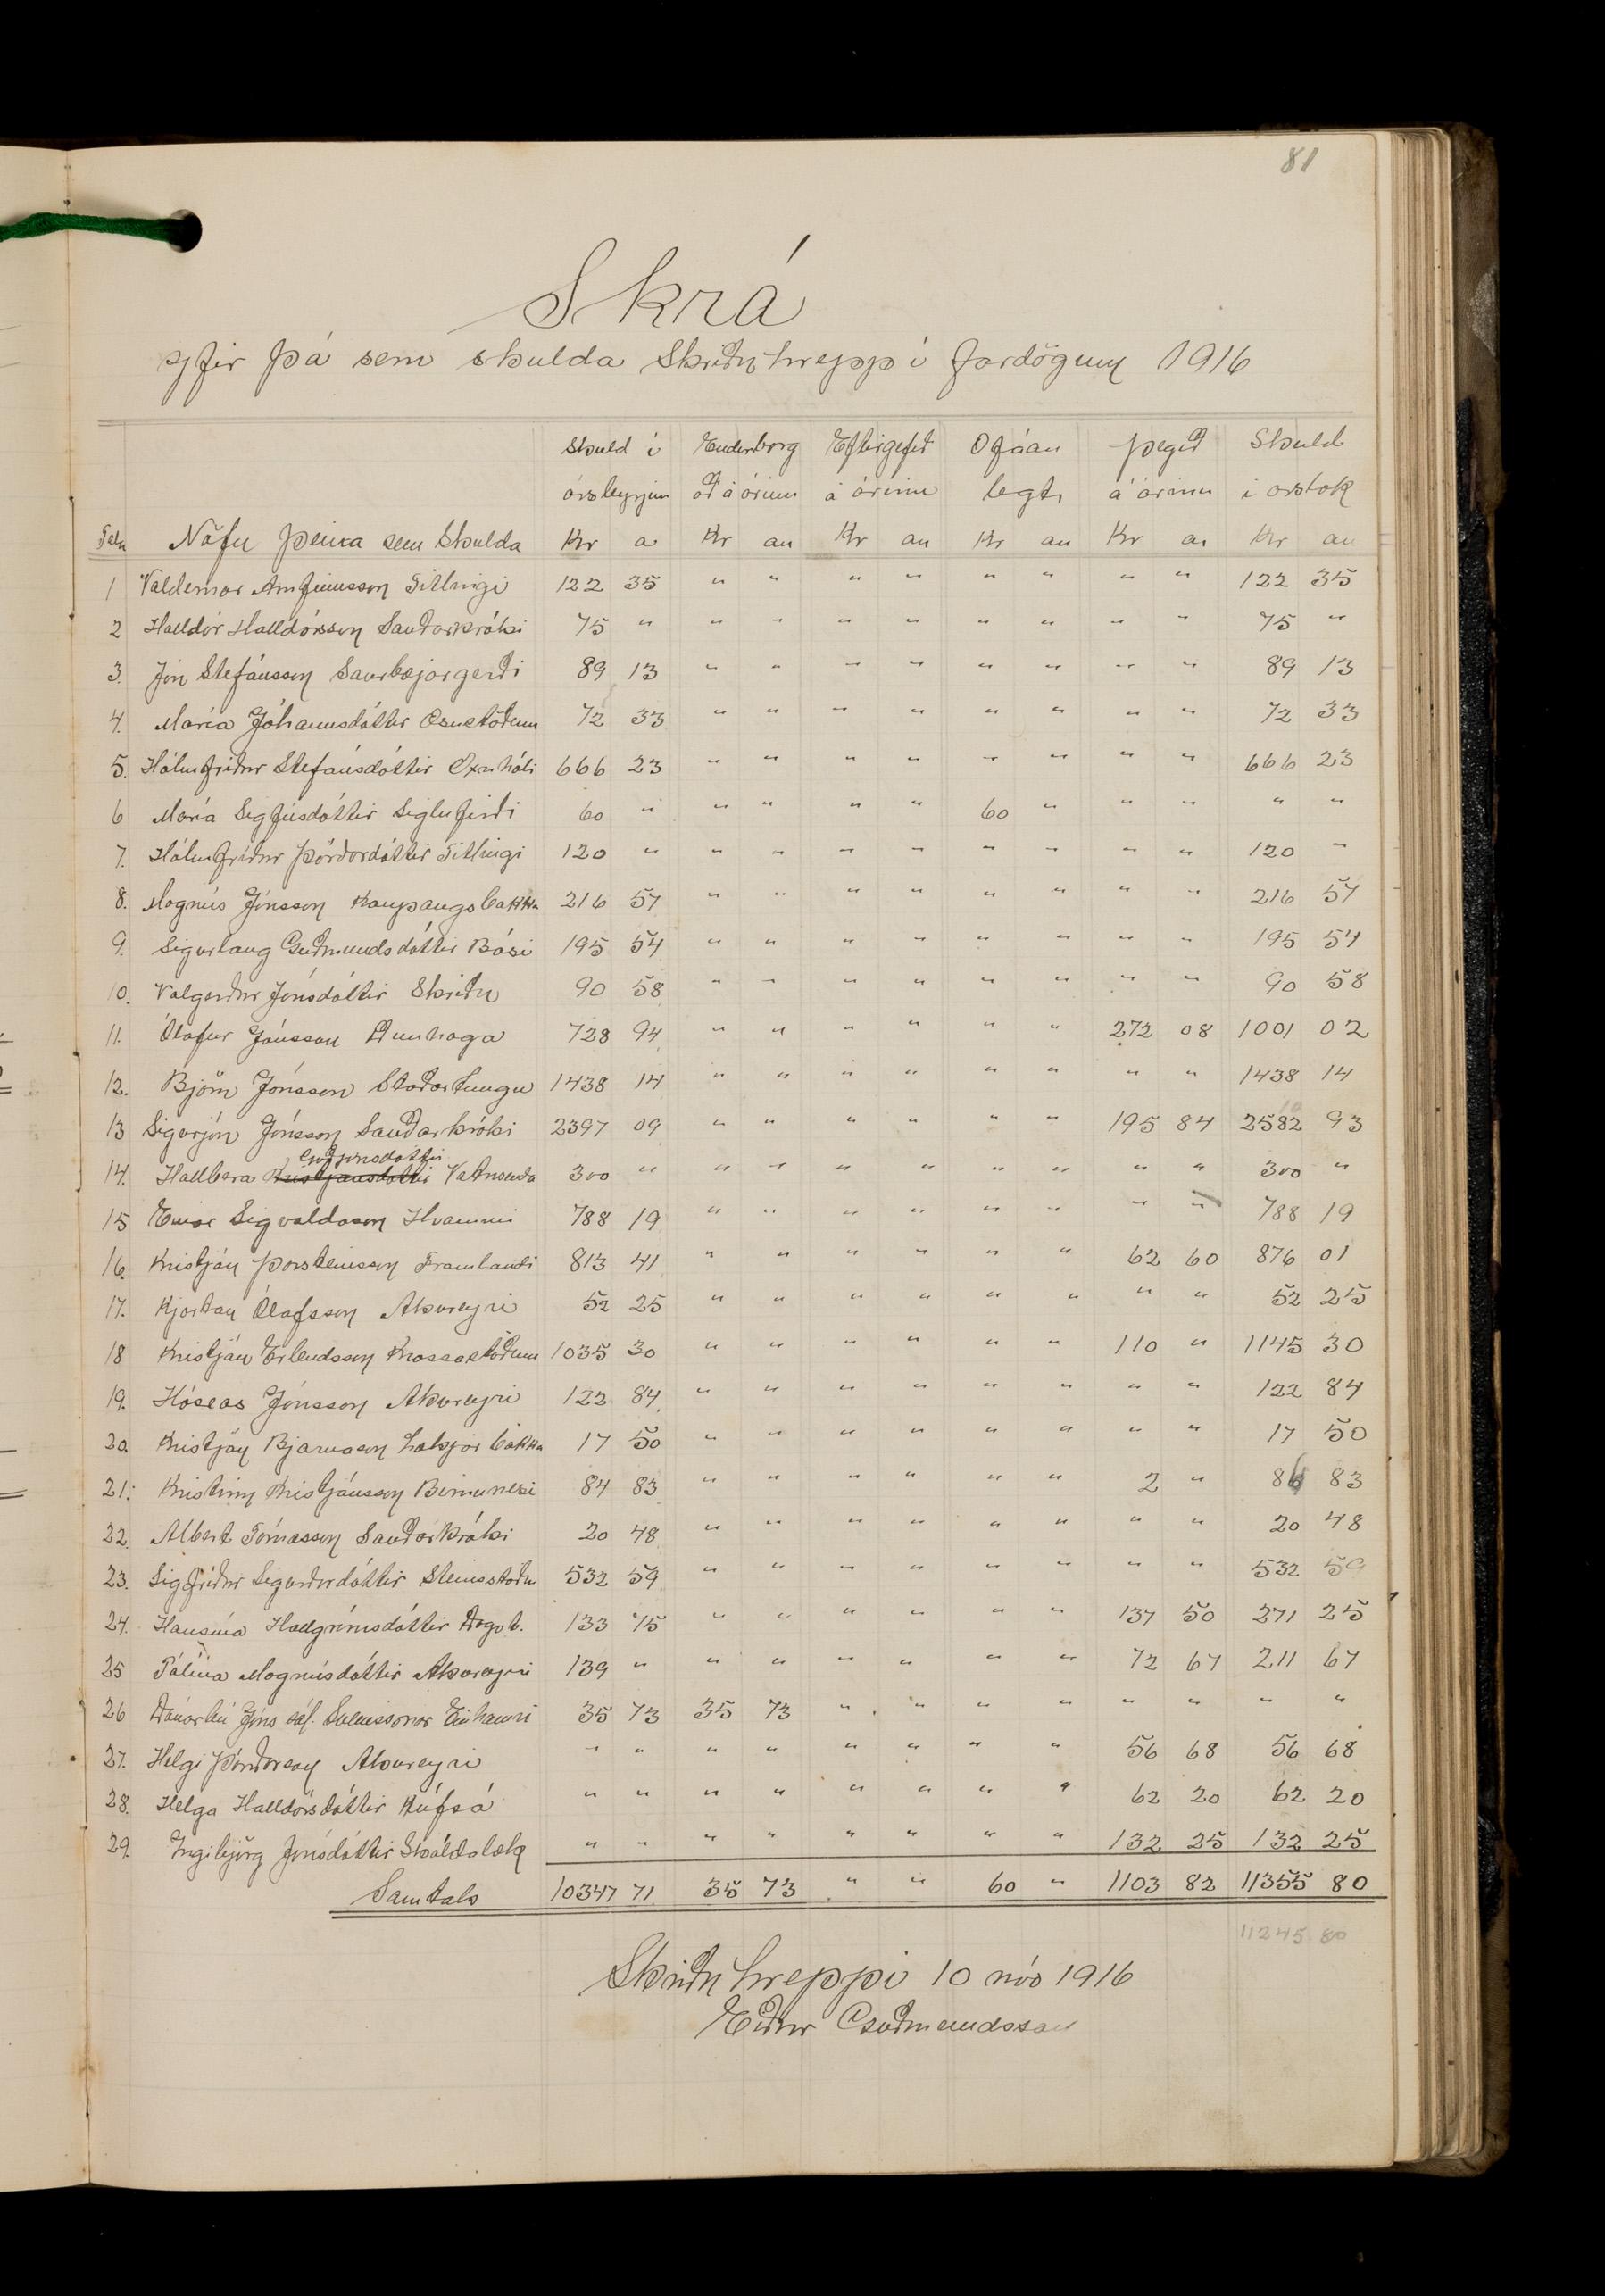 81
Skrá
yfir þá sem skulda Skriðuhreppi í fardögum 1916
Skuld í Endurborg Eftirgefið Ófáan þegið Skuld
ársbyrjun að á árinu á árinu legt á árinu í árslok
Tala Nöfn þeirra sem Skulda Kr a Kr au Kr au Kr au Kr au Kr au
1 Valdemar Arnfinnsson Titlingi 122 35 " " " " " " " " 122 35
2 Halldór Halldórsson Sauðarkróki 75 " " " " " " " " " 75 "
3. Jón Stefánsson Saurbæjargerði 89 13 " " " " " " " " 89 13
4. María Jóhannsdóttir Ásustöðum 72 33 " " " " " " " " 72 33
5. Hólmfríður Stefánsdóttir Öxnhóli 666 23 " " " " " " " " 666 23
6 María Sigfúsdóttir Siglufirði 60 " " " " " 60 " " " " "
7. Hólmfríður Þórðardóttir Titlingi 120 " " " " " " " " " 120 "
8. Magnús Jónsson Kaupangsbakka 216 57 " " " " " " " " 216 57
9. Sigurlaug Guðmundsdóttir Bási 195 54 " " " " " " " " 195 54
10. Valgerður Jónsdóttir Skriðu 90 58 " " " " " " " " 90 58
11. Ólafur Jónsson Dunhaga 728 94 " " " " " " 272 08 1001 02
12. Björn Jónsson Staðartungu 1438 14 " " " " " " " " 1438 14
13 Sigurjón Jónsson Sauðarkróki 2397 09 " " " " " " 195 84 2582 93
Guðjónsdóttir
14. Hallbera Kristjánsdóttir Vatnsenda 300 " " " " " " " " " 300 "
15 Einar Sigvaldason Hvammi 788 19 " " " " " " " " 788 19
16. Kristján Þorsteinsson Framlandi 813 41 " " " " " " 62 60 876 01
17. Kjartan Ólafsson Akureyri 52 25 " " " " " " " " 52 25
18 Kristján Erlendsson Krossastöðum 1035 30 " " " " " " 110 " 1145 30
19. Hóseas Jónsson Akureyri 122 84 " " " " " " " " 122 84
20. Kristján Bjarnason Lækjarbakka 17 50 " " " " " " " " 17 50
21. Kristinn Kristjánsson Birnunesi 84 83 " " " " " " 2 " 86 83
22. Albert Tómasson Sauðarkróki 20 48 " " " " " " " " 20 48
23. Sigfríður Sigurðardóttir Steinsstöðu 532 59 " " " " " " " " 532 59
24. Hansína Hallgrímsdóttir Dagv. 133 75 " " " " " " 137 50 271 25
25 Pálína Magnúsdóttir Akureyri 139 " " " " " " " 72 67 211 67
26 Dánarbú Jóns sál. Sveinssonar Einhamri 35 73 35 73 " " " " " " " "
27. Helgi Þórðarson Akureyri " " " " " " " " 56 68 56 68
28. Helga Halldórsdóttir Kúfsá " " " " " " " " 62 20 62 20
29. Ingibjörg Jónsdóttir Skáldalæk " " " " " " " " 132 25 132 25
Samtals 10347 71 35 73 " " 60 " 1103 82 11355 80
11245 80
Skriðuhreppi 10 nóv 1916
Eiður Guðmundsson